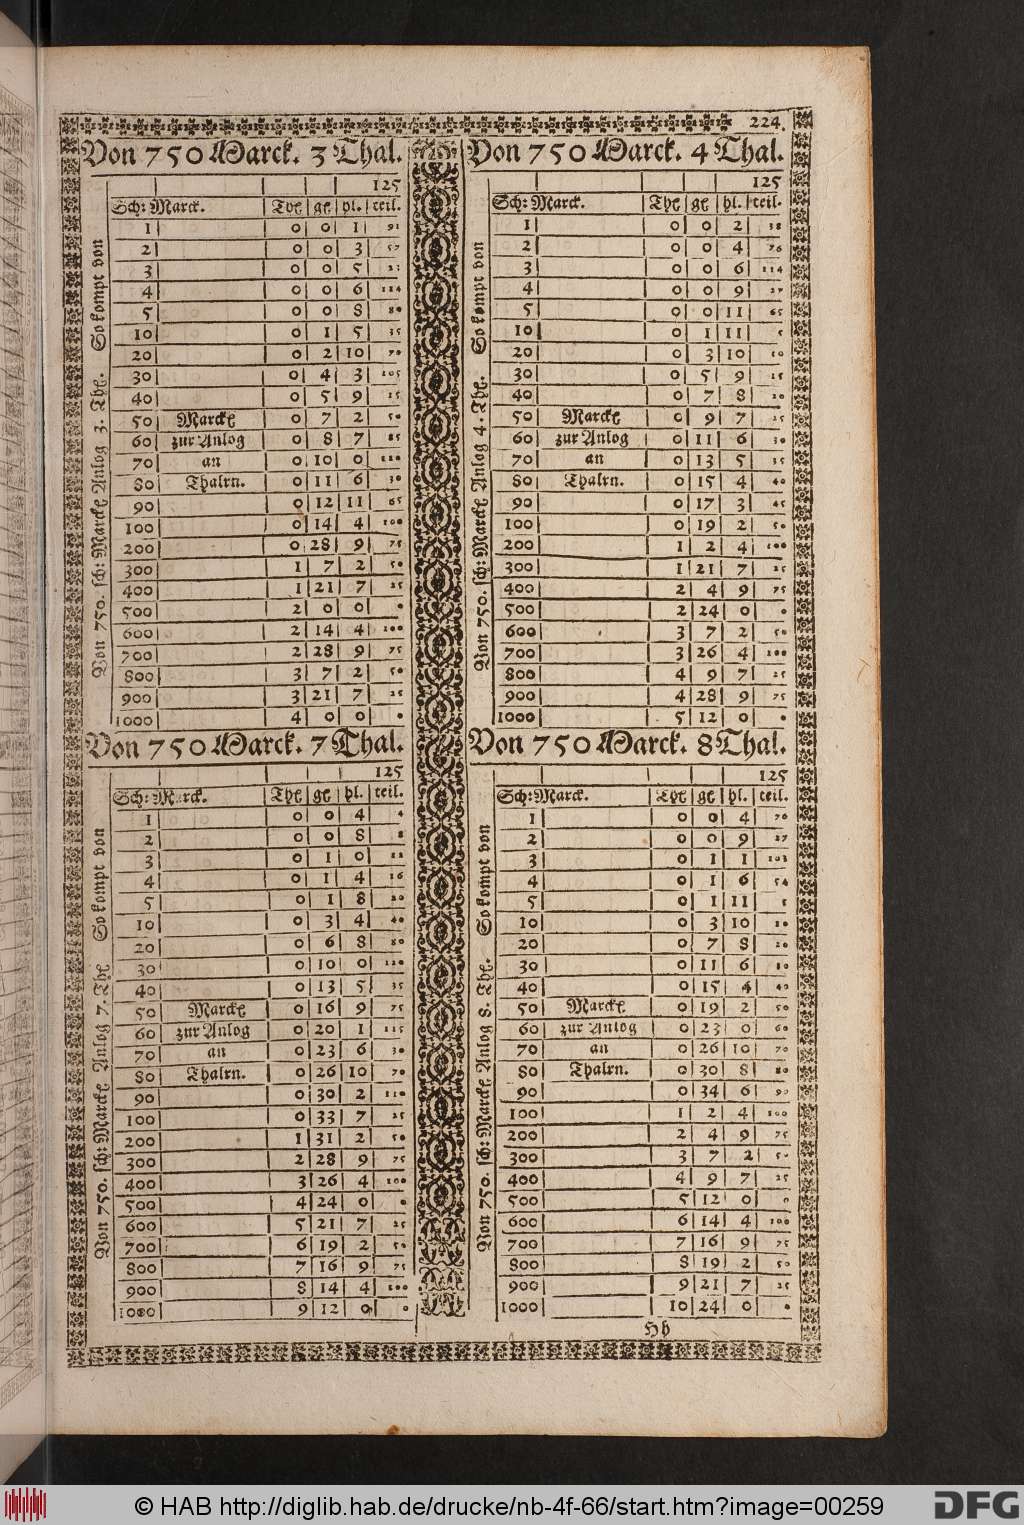 224.
Von 750 Marck. 3 Thal.
125
Sch: Marck. Thl gl hl. teil.
So kompt von
Von 750. sch: Marckl Anlog 3. Thl.
1 0 0 1 91
2 0 0 3 57
3 0 0 5 23
4 0 0 6 114
5 0 0 8 80
10 0 1 5 35
20 0 2 10 70
30 0 4 3 105
40 0 5 9 15
50 Marckl 0 7 2 50
60 zur Anlog 0 8 7 85
70 an 0 10 0 120
80 Thalrn. 0 11 6 30
90 0 12 11 65
100 0 14 4 100
200 0 28 9 75
300 1 7 2 50
400 1 21 7 25
500 2 0 0 0
600 2 14 4 100
700 2 28 9 75
800 3 7 2 50
900 3 21 7 25
1000 4 0 0 0
Von 750 Marck. 4 Thal.
125
Sch: Marck. Thl gl hl. teil.
So kompt von
Von 750. sch: Marckl Anlog 4. Thl.
1 0 0 2 38
2 0 0 4 76
3 0 0 6 114
4 0 0 9 27
5 0 0 11 65
10 0 1 11 5
20 0 3 10 10
30 0 5 9 15
40 0 7 8 20
50 Marckl 0 9 7 25
60 zur Anlog 0 11 6 30
70 an 0 13 5 35
80 Thalrn. 0 15 4 40
90 0 17 3 45
100 0 19 2 50
200 1 2 4 100
300 1 21 7 25
400 2 4 9 75
500 2 24 0 0
600 3 7 2 50
700 3 26 4 100
800 4 9 7 25
900 4 28 9 75
1000 5 12 0 0
Von 750 Marck. 7 Thal.
125
Sch: Marck. Thl gl hl. teil.
So kompt von
Von 750. sch: Marckl Anlog 7. Thl
1 0 0 4 4
2 0 0 8 8
3 0 1 0 12
4 0 1 4 16
5 0 1 8 20
10 0 3 4 40
20 0 6 8 80
30 0 10 0 120
40 0 13 5 35
50 Marckl 0 16 9 75
60 zur Anlog 0 20 1 115
70 an 0 23 6 30
80 Thalrn. 0 26 10 70
90 0 30 2 110
100 0 33 7 25
200 1 31 2 50
300 2 28 9 75
400 3 26 4 100
500 4 24 0 0
600 5 21 7 25
700 6 19 2 50
800 7 16 9 75
900 8 14 4 100
1000 9 12 0 0
Von 750 Marck. 8 Thal.
125
Sch: Marck. Thl gl hl. teil.
So kompt von
Von 750. sch: Marckl Anlog 8. Thl.
1 0 0 4 76
2 0 0 9 27
3 0 1 1 103
4 0 1 6 54
5 0 1 11 5
10 0 3 10 10
20 0 7 8 20
30 0 11 6 30
40 0 15 4 40
50 Marckl 0 19 2 50
60 zur Anlog 0 23 0 60
70 an 0 26 10 70
80 Thalrn. 0 30 8 80
90 0 34 6 90
100 1 2 4 100
200 2 4 9 75
300 3 7 2 50
400 4 9 7 25
500 5 12 0 0
600 6 14 4 100
700 7 16 9 75
800 8 19 2 50
900 9 21 7 25
1000 10 24 0 0
Hh
© HAB http://diglib.hab.de/drucke/nb-4f-66/start.htm?image=00259
DFG